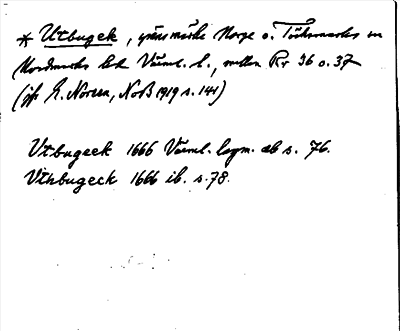 * Utbugek, gränsmärke Norge o. Töcksmarks sn
Nordmarks hd Värml. l., mellan Rr 36 o. 37
(jfr E. Noreen, NoB 1919 s. 141)
Vtbugeck 1666 Värml. lagm. db s. 76.
Vthbugeck 1666 ib. s. 78.